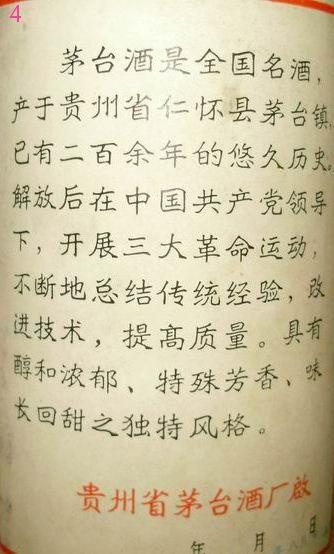 4
茅台酒是全国名酒，
产于贵州省仁怀县茅台镇，
已有二百余年的悠久历史。
解放后在中国共产党领导
下，开展三大革命运动，
不断地总结传统经验，改
进技术，提高质量。具有
醇和浓郁、特殊芳香、味
长回甜之独特风格。
贵州省茅台酒厂啟
年 月 日